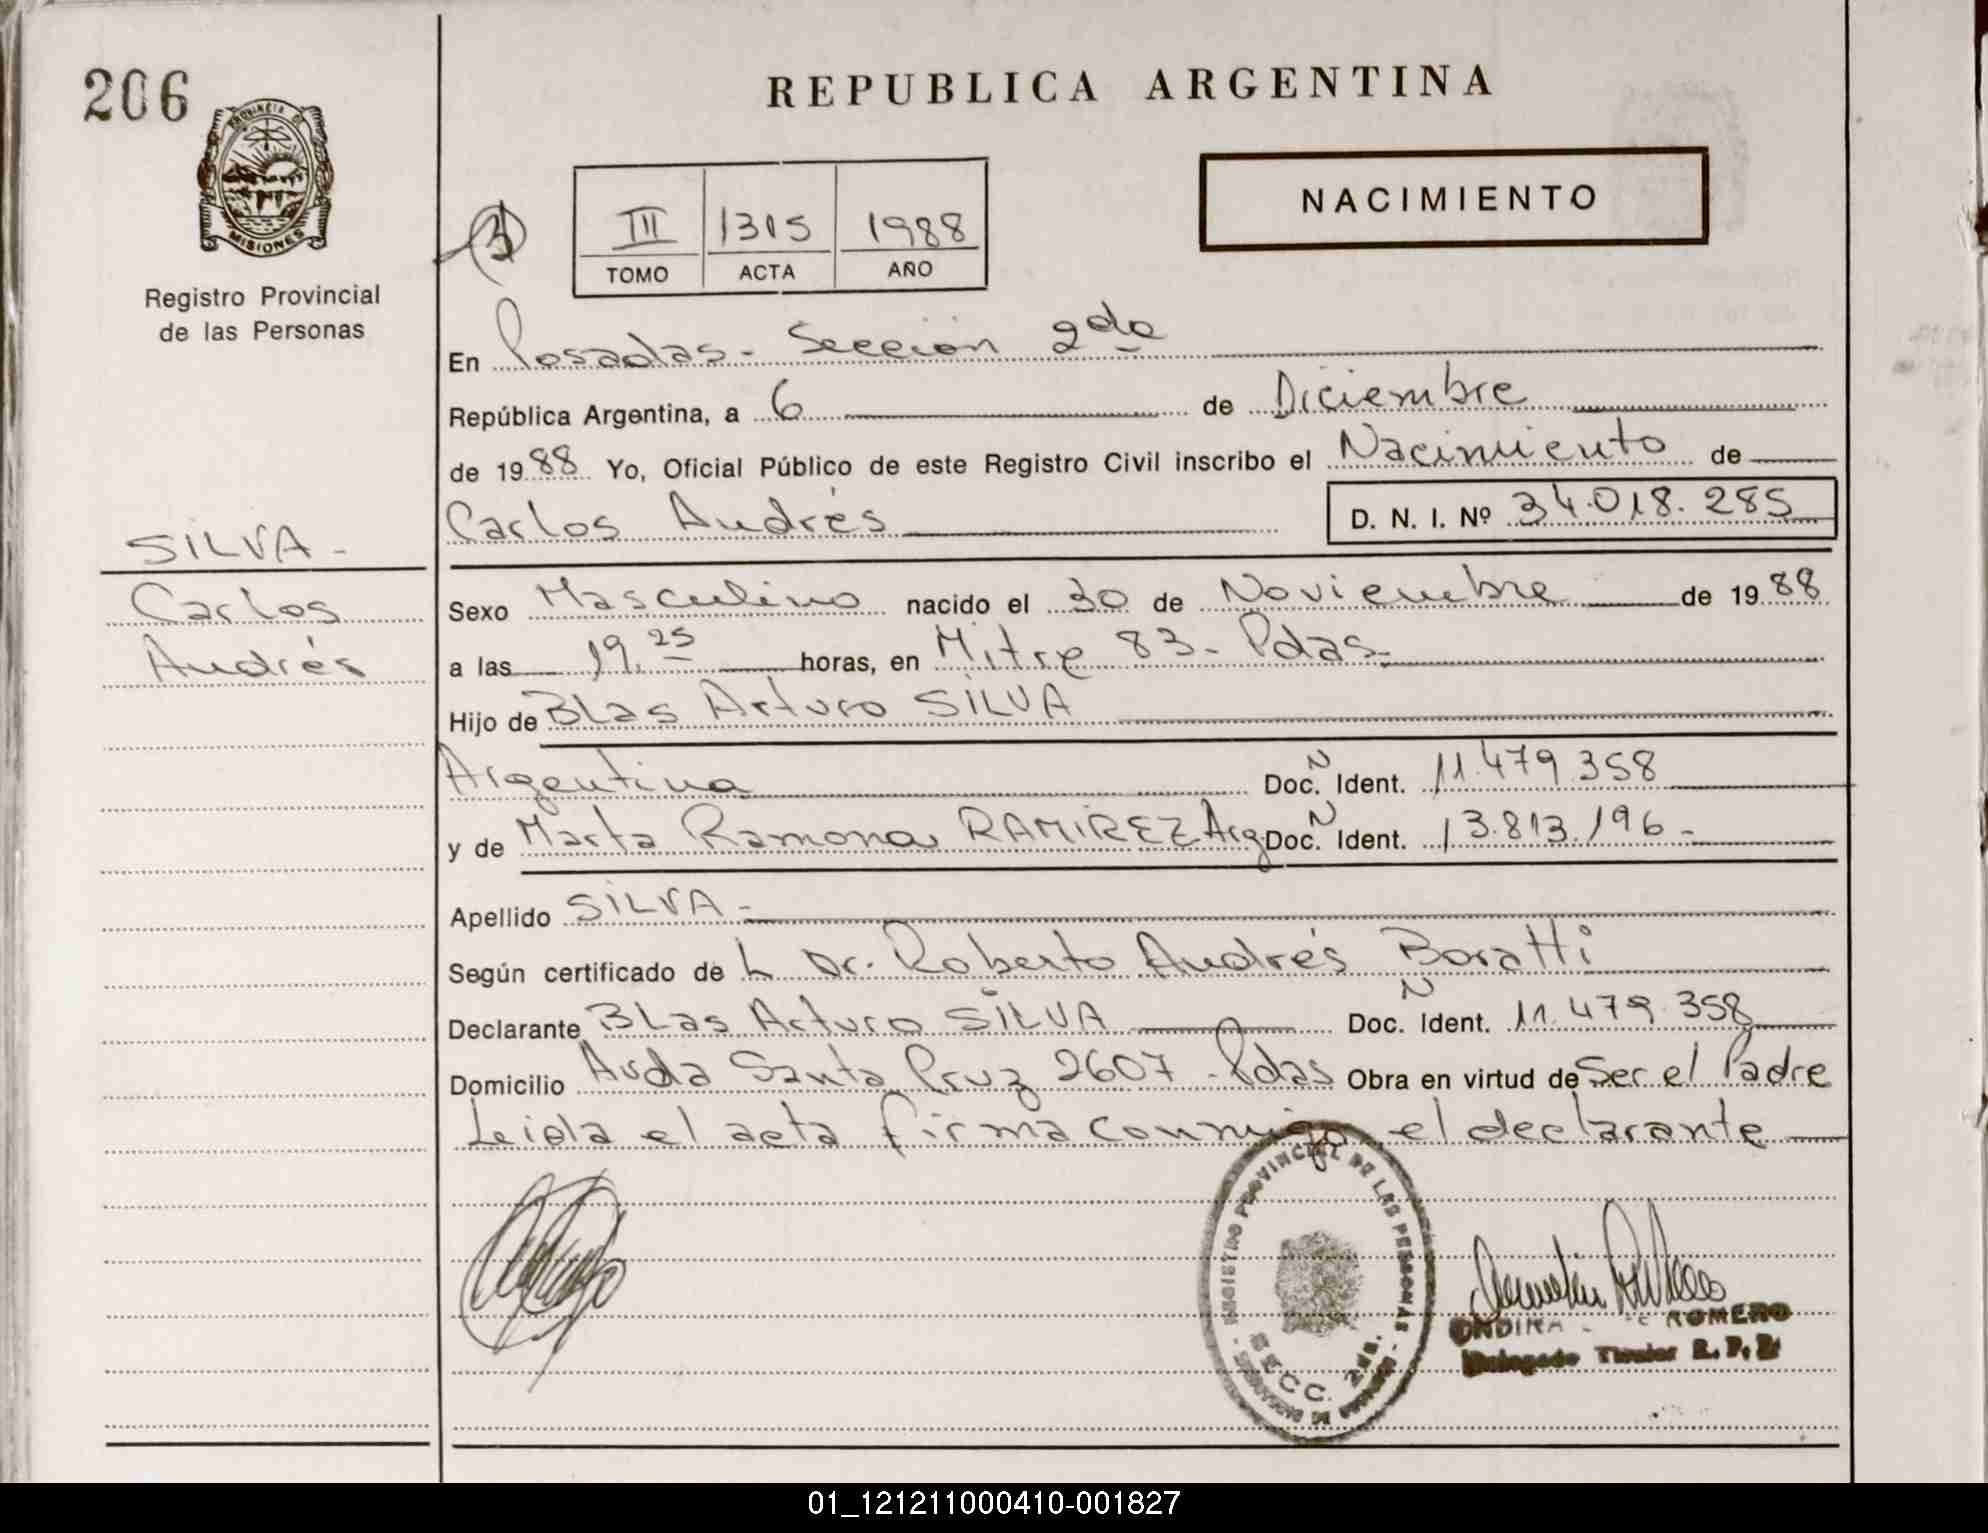 206
PROVINCIA DE
MISIONES
Registro Provincial
de las Personas
SILVA -
Carlos
Andrés
REPUBLICA ARGENTINA
NACIMIENTO
III 1315 1988
TOMO ACTA AÑO
En Posadas - Sección 2da
República Argentina, a 6 de Diciembre
de 1988 Yo, Oficial Público de este Registro Civil inscribo el Nacimiento de
Carlos Andrés D. N. I. Nº 34.018.285
Sexo Masculino nacido el 30 de Noviembre de 1988
a las 19.25 horas, en Mitre 83 - Pdas.
Hijo de Blas Arturo SILVA
Argentina Doc. N Ident. 11.479.358
y de Marta Ramona RAMIREZ Arg Doc. N Ident. 13.813.196 -
Apellido SILVA -
Según certificado de L Dr. Roberto Andrés Boratti
Declarante Blas Arturo SILVA Doc. N Ident. 11.479.358
Domicilio Avda Santa Cruz 2607 - Pdas Obra en virtud de Ser el Padre
Leida el acta firma conmigo el declarante
REGISTRO PROVINCIAL DE LAS PERSONAS
SECC. 2da.
ONDINA ROMERO
Delegado Titular R. P. P.
01_121211000410-001827